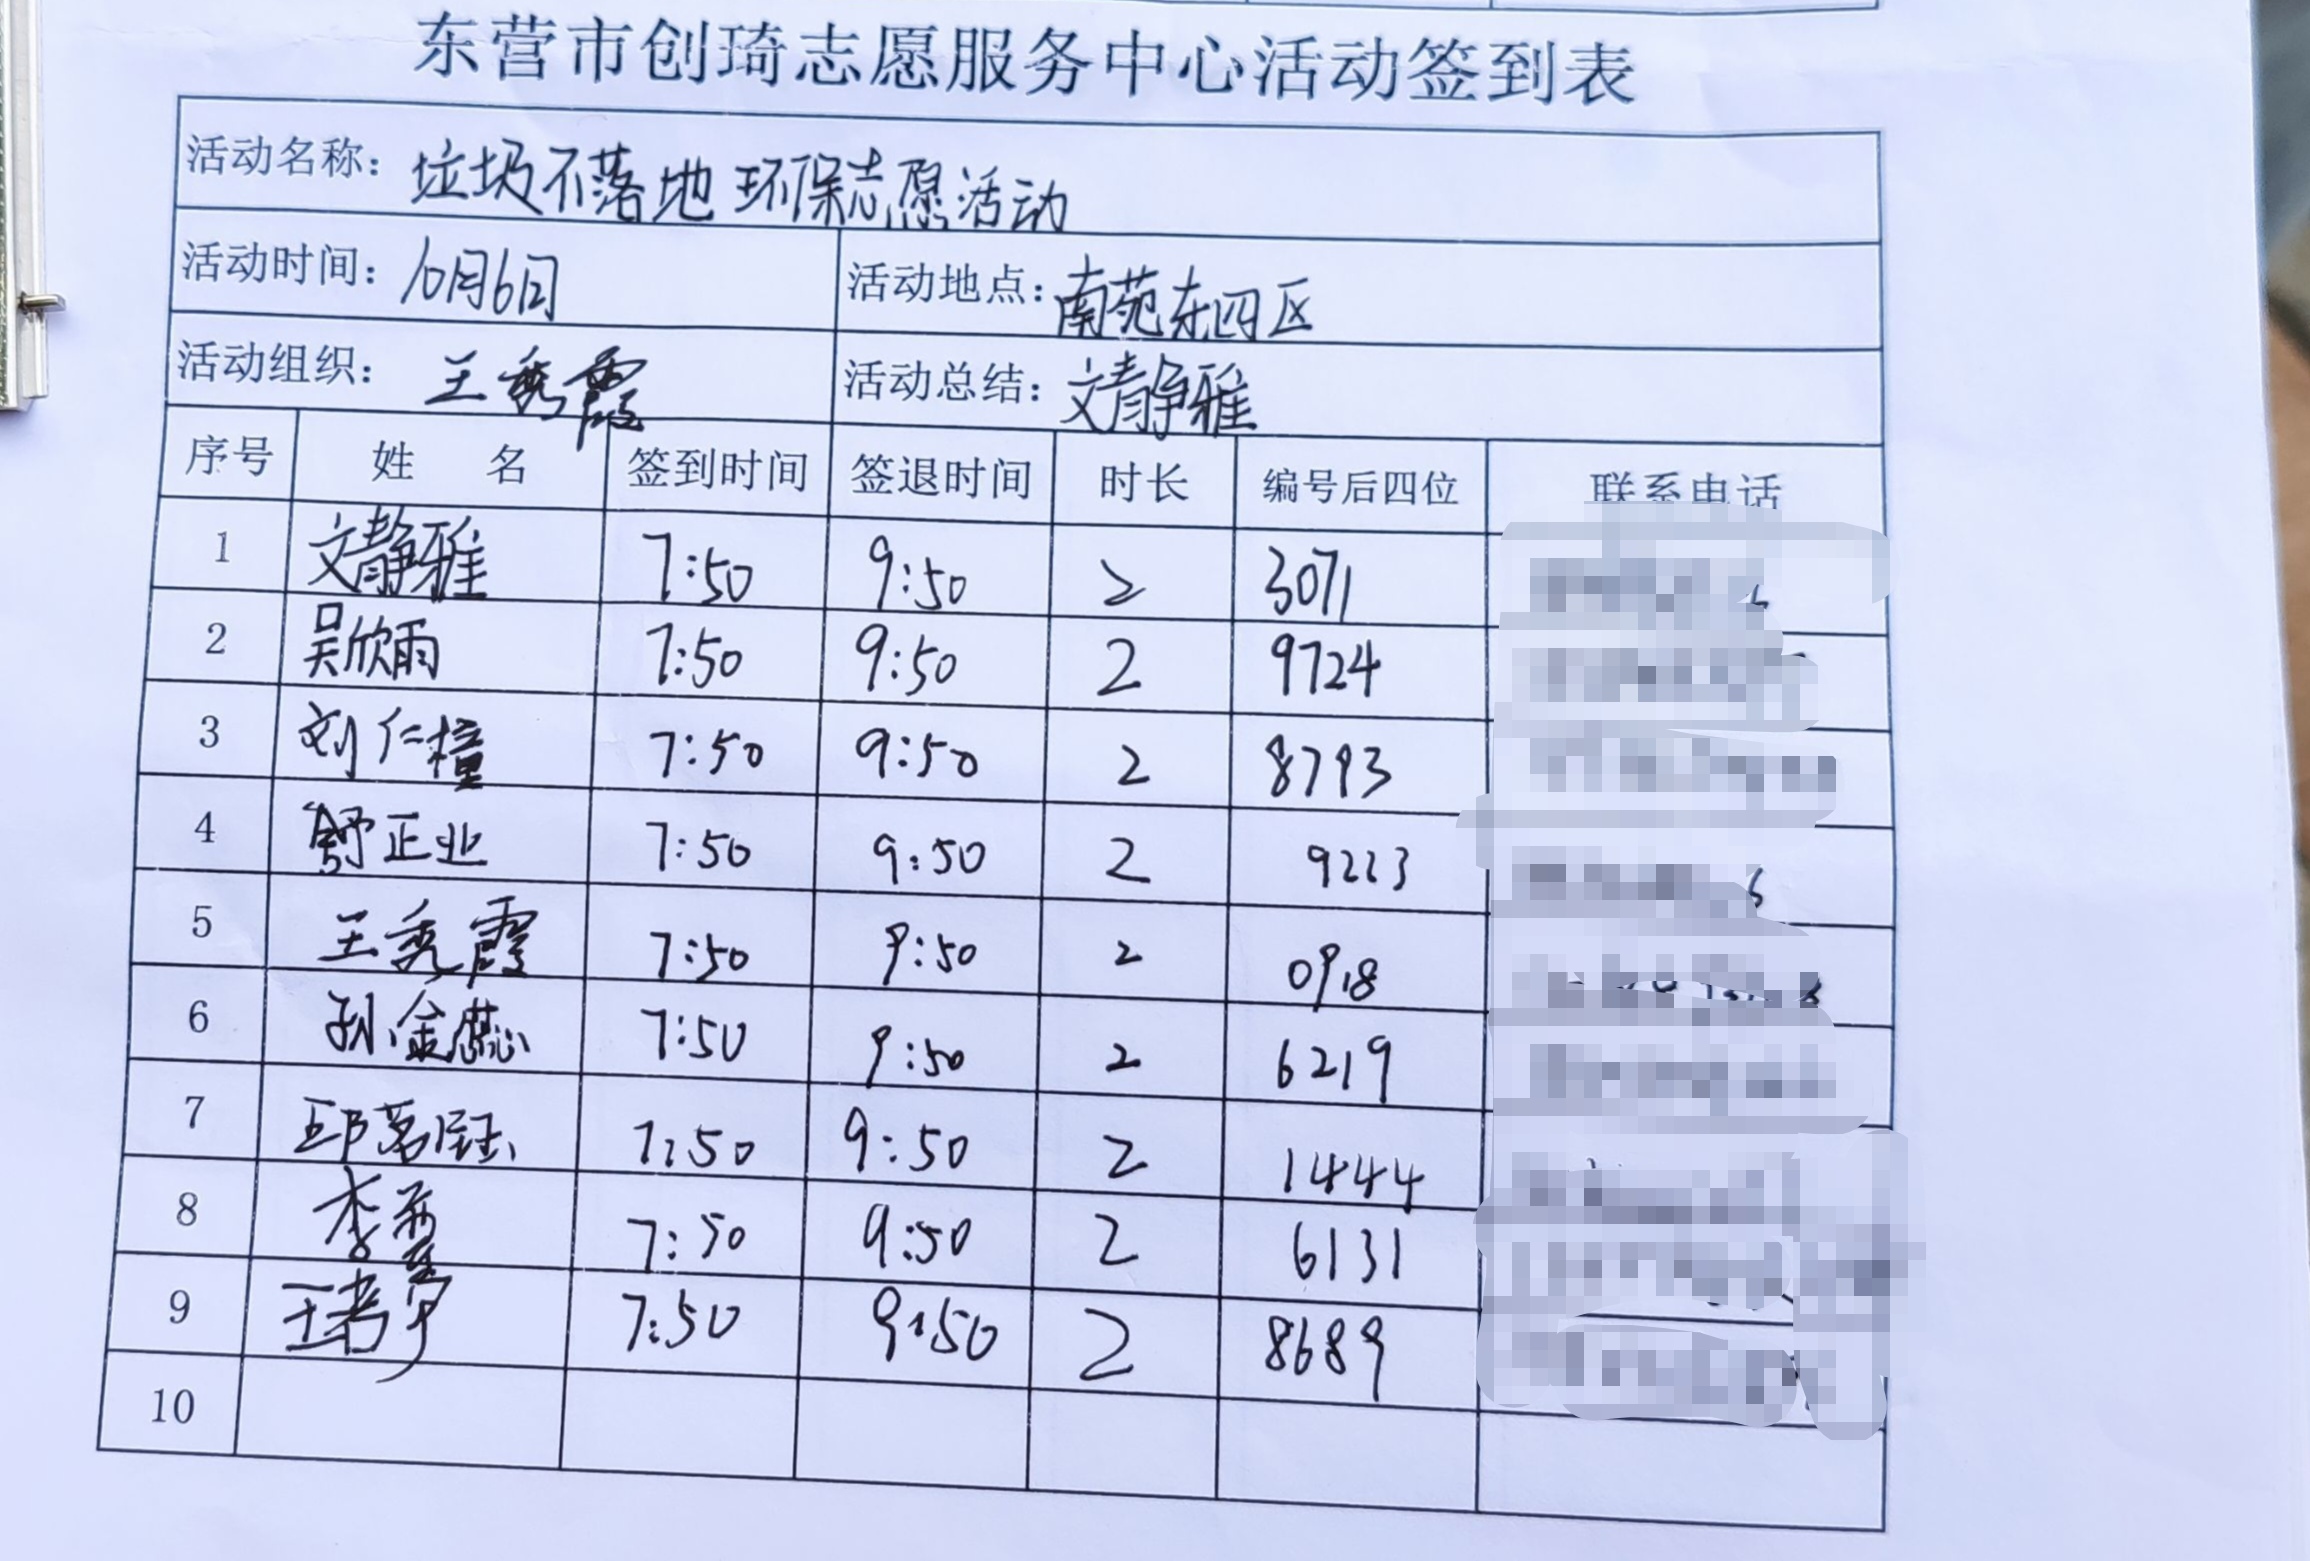 东营市创琦志愿服务中心活动签到表
活动名称：垃圾不落地 环保志愿活动
活动时间：10月6日 活动地点：南苑东四区
活动组织：王秀霞 活动总结：文静雅
序号 姓名 签到时间 签退时间 时长 编号后四位 联系电话
1 文静雅 7:50 9:50 2 3071
2 吴欣雨 7:50 9:50 2 9724
3 刘仁橦 7:50 9:50 2 8793
4 舒正业 7:50 9:50 2 9223
5 王秀霞 7:50 9:50 2 0918
6 孙金蕊 7:50 9:50 2 6219
7 邱茗钰 7:50 9:50 2 1444
8 李 7:50 9:50 2 6131
9 王 7:50 9:50 2 8689
10